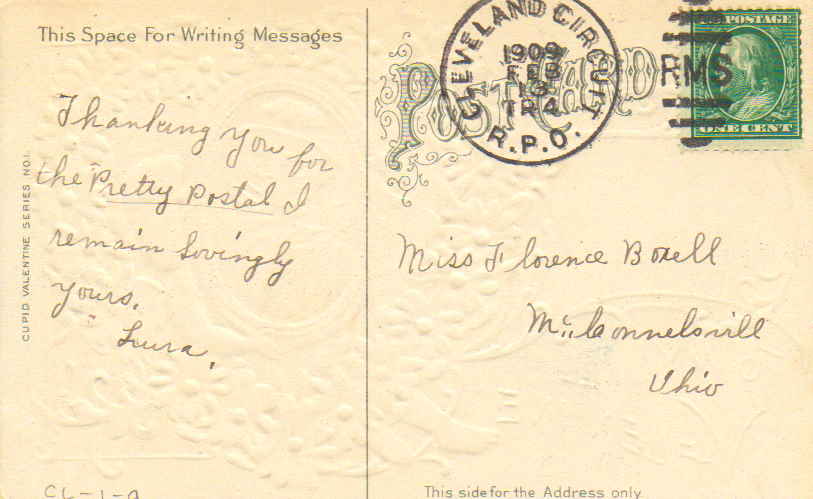 This Space For Writing Messages
Thanking you for
the "Pretty Postal I
remain Lovingly
yours,
Lura.
CUPID VALENTINE SERIES NO.1.
CL-1-9
POST CARD
CLEVELAND CIRCUIT
1909
FEB
13
TR4
R.P.O.
RMS
POSTAGE
ONE CENT
Miss Florence Boxell
McConnelsvill
Ohio
This side for the Address only